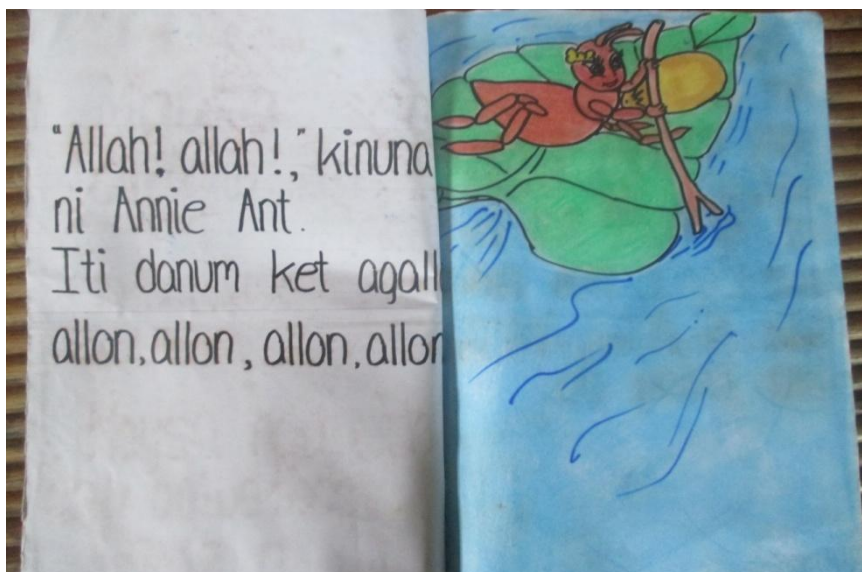 "Allah! allah!," kinuna
ni Annie Ant.
Iti danum ket agall
allon, allon, allon, allon